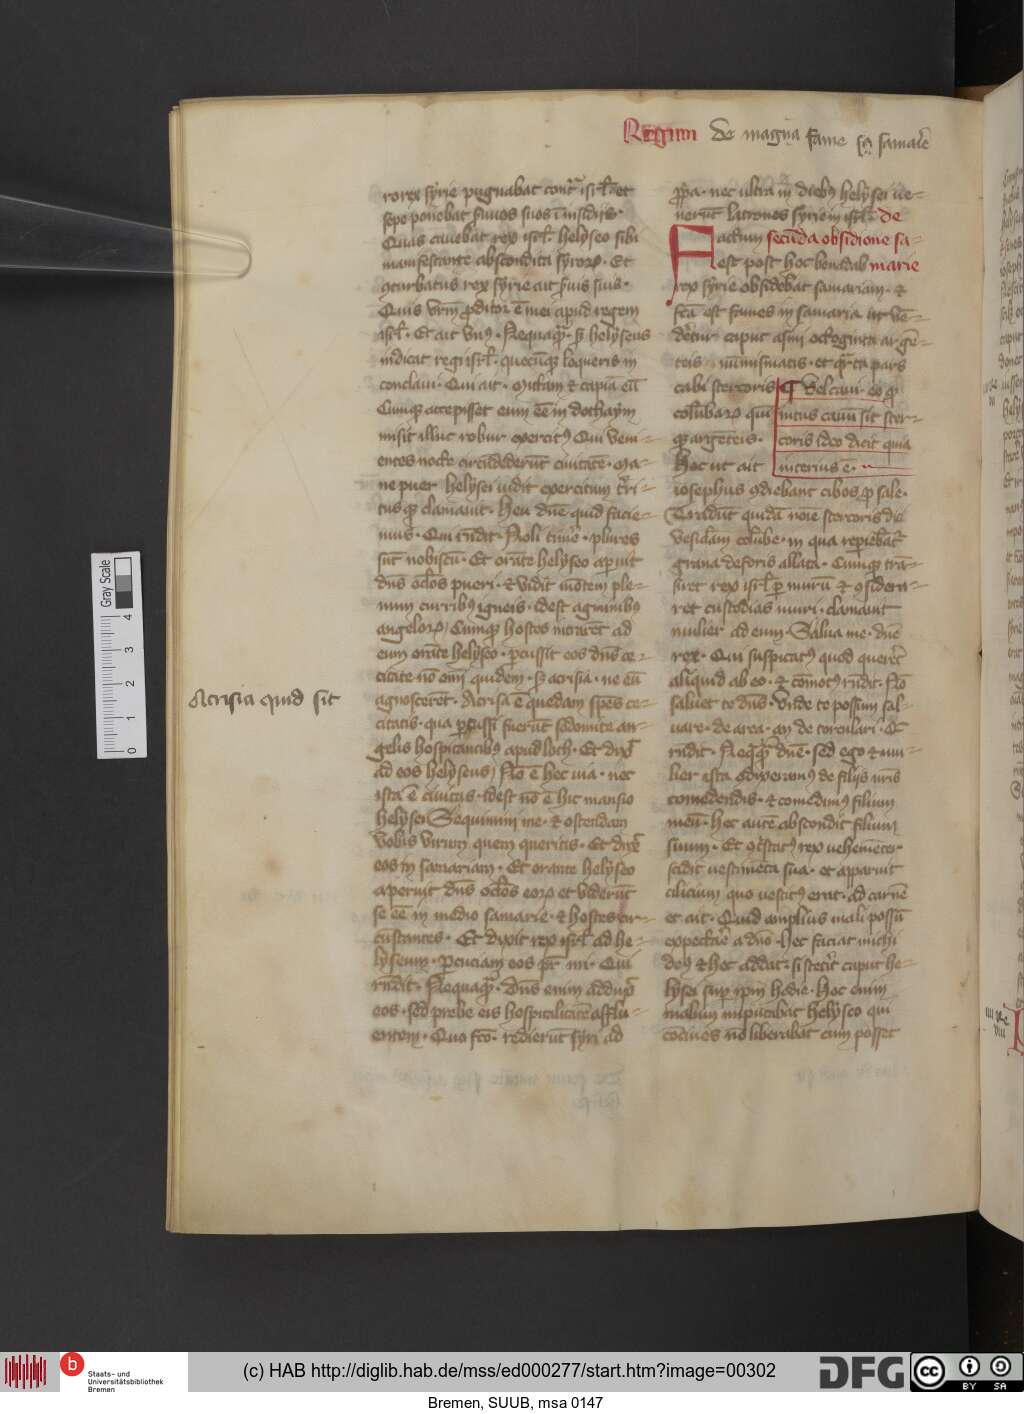 Regum de magna fame in samarie
rorex syrie pugnabat contra isrl et
sepe ponebat suuos suos i insidijs
Quas cauebat rex isrl helyseo sibi
manifestante abscondita syrorum Et
9turbatus rex syrie ait suis suis
Quis vrm proditor e mei apud regem
isrl Et ait vnus Nequaqua sed helyseus
indicat regi isrl quecunque loqueris in
conclaui Qui ait mittam et capia eu
Cumque accepisset eum ee in dothaym
misit illuc robur exercitus Qui veni=
entes nocte circudederut ciuitate Ma=
ne puer helysei uidit exercitum terri=
tusque clamauit Heu dne quid facie=
mus Qui rndit Noli time plures
sut nobiscu Et orate helyseo aperuit
dns oclos pueri et vidit motem ple=
num curribus igneis idest agminibus
angelorum Cumque hostes intraret ad
eum orate helyseo percussit eos dns ce=
citate no em quidem sed acrisia ne eu
agnosceret Acrisia e quedam spes ce=
citatis qua percussi fuerut sodomite an=
gelis hospitantibus apud loth Et dixit
ad eos helyseus No e hec uia nec
ista e ciuitas idest no e hic mansio
helysei Sequimini me et ostendam
vobis virum quem queritis Et duxit
eos in samariam Et orante helyseo
aperuit dns oclos eorum et viderut
se ee in medio samarie et hostes cir=
custantes Et dixit rex isrl ad he=
lyseum Percuciam eos pr mi Qui
rndit Nequaqua dns enim adduxit
eos sed prebe eis hospitalitate afflu=
entem Quo fco redierut syri ad
Acrisia quid sit
ppria nec ultra in diebus helysei ue=
nerut latrones syrie in isrl de
Factum secuda obsidione sa=
est post hoc benadab marie
rex syrie obsidebat samariam et
fca est fames in samaria ut ve=
deretur caput asini octoginta arge=
teis numismatis et quarta pars
cabi stercoris
columbarum quinque
argenteis
Hec ut ait
vel caui eo quod
intus cauu sit ster=
coris ideo dicit quia
interius e
iosephus 9diebant cibos pro sale
Tradut quida noie stercoris dici
vesicam colube in qua reperiebatur
grana deforis allata Cumque tra=
siret rex isrl per muru et 9sidera=
ret custodias muri clamauit
mulier ad eum Salua me dne
rex Qui suspicatus quod quereret
aliquid ab eo et comotus rndit No
saluet te dns Vnde te possum sal=
uare de area an de torculari Et
rndit Nequaqua dne sed ego et mu=
lier ista 9dixeramus de filijs nris
comedendis et comedimus filium
meu Hec aute abscondit filium
suum Et 9tristatus rex vehementer
scidit vestimeta sua et apparuit
cilicium quo vestitus erat ad carne
et ait Quid amplius mali possu
expectare a dno Hec faciat michi
deus et hec addat si steterit caput he=
lysei super ipm hodie Hoc enim
malum imputabat helyseo qui
cociues no liberabat cum posset
Gray Scale
0 1 2 3 4
b
Staats- und
Universitätsbibliothek
Bremen
(c) HAB http://diglib.hab.de/mss/ed000277/start.htm?image=00302
DFG
cc BY SA
Bremen, SUUB, msa 0147